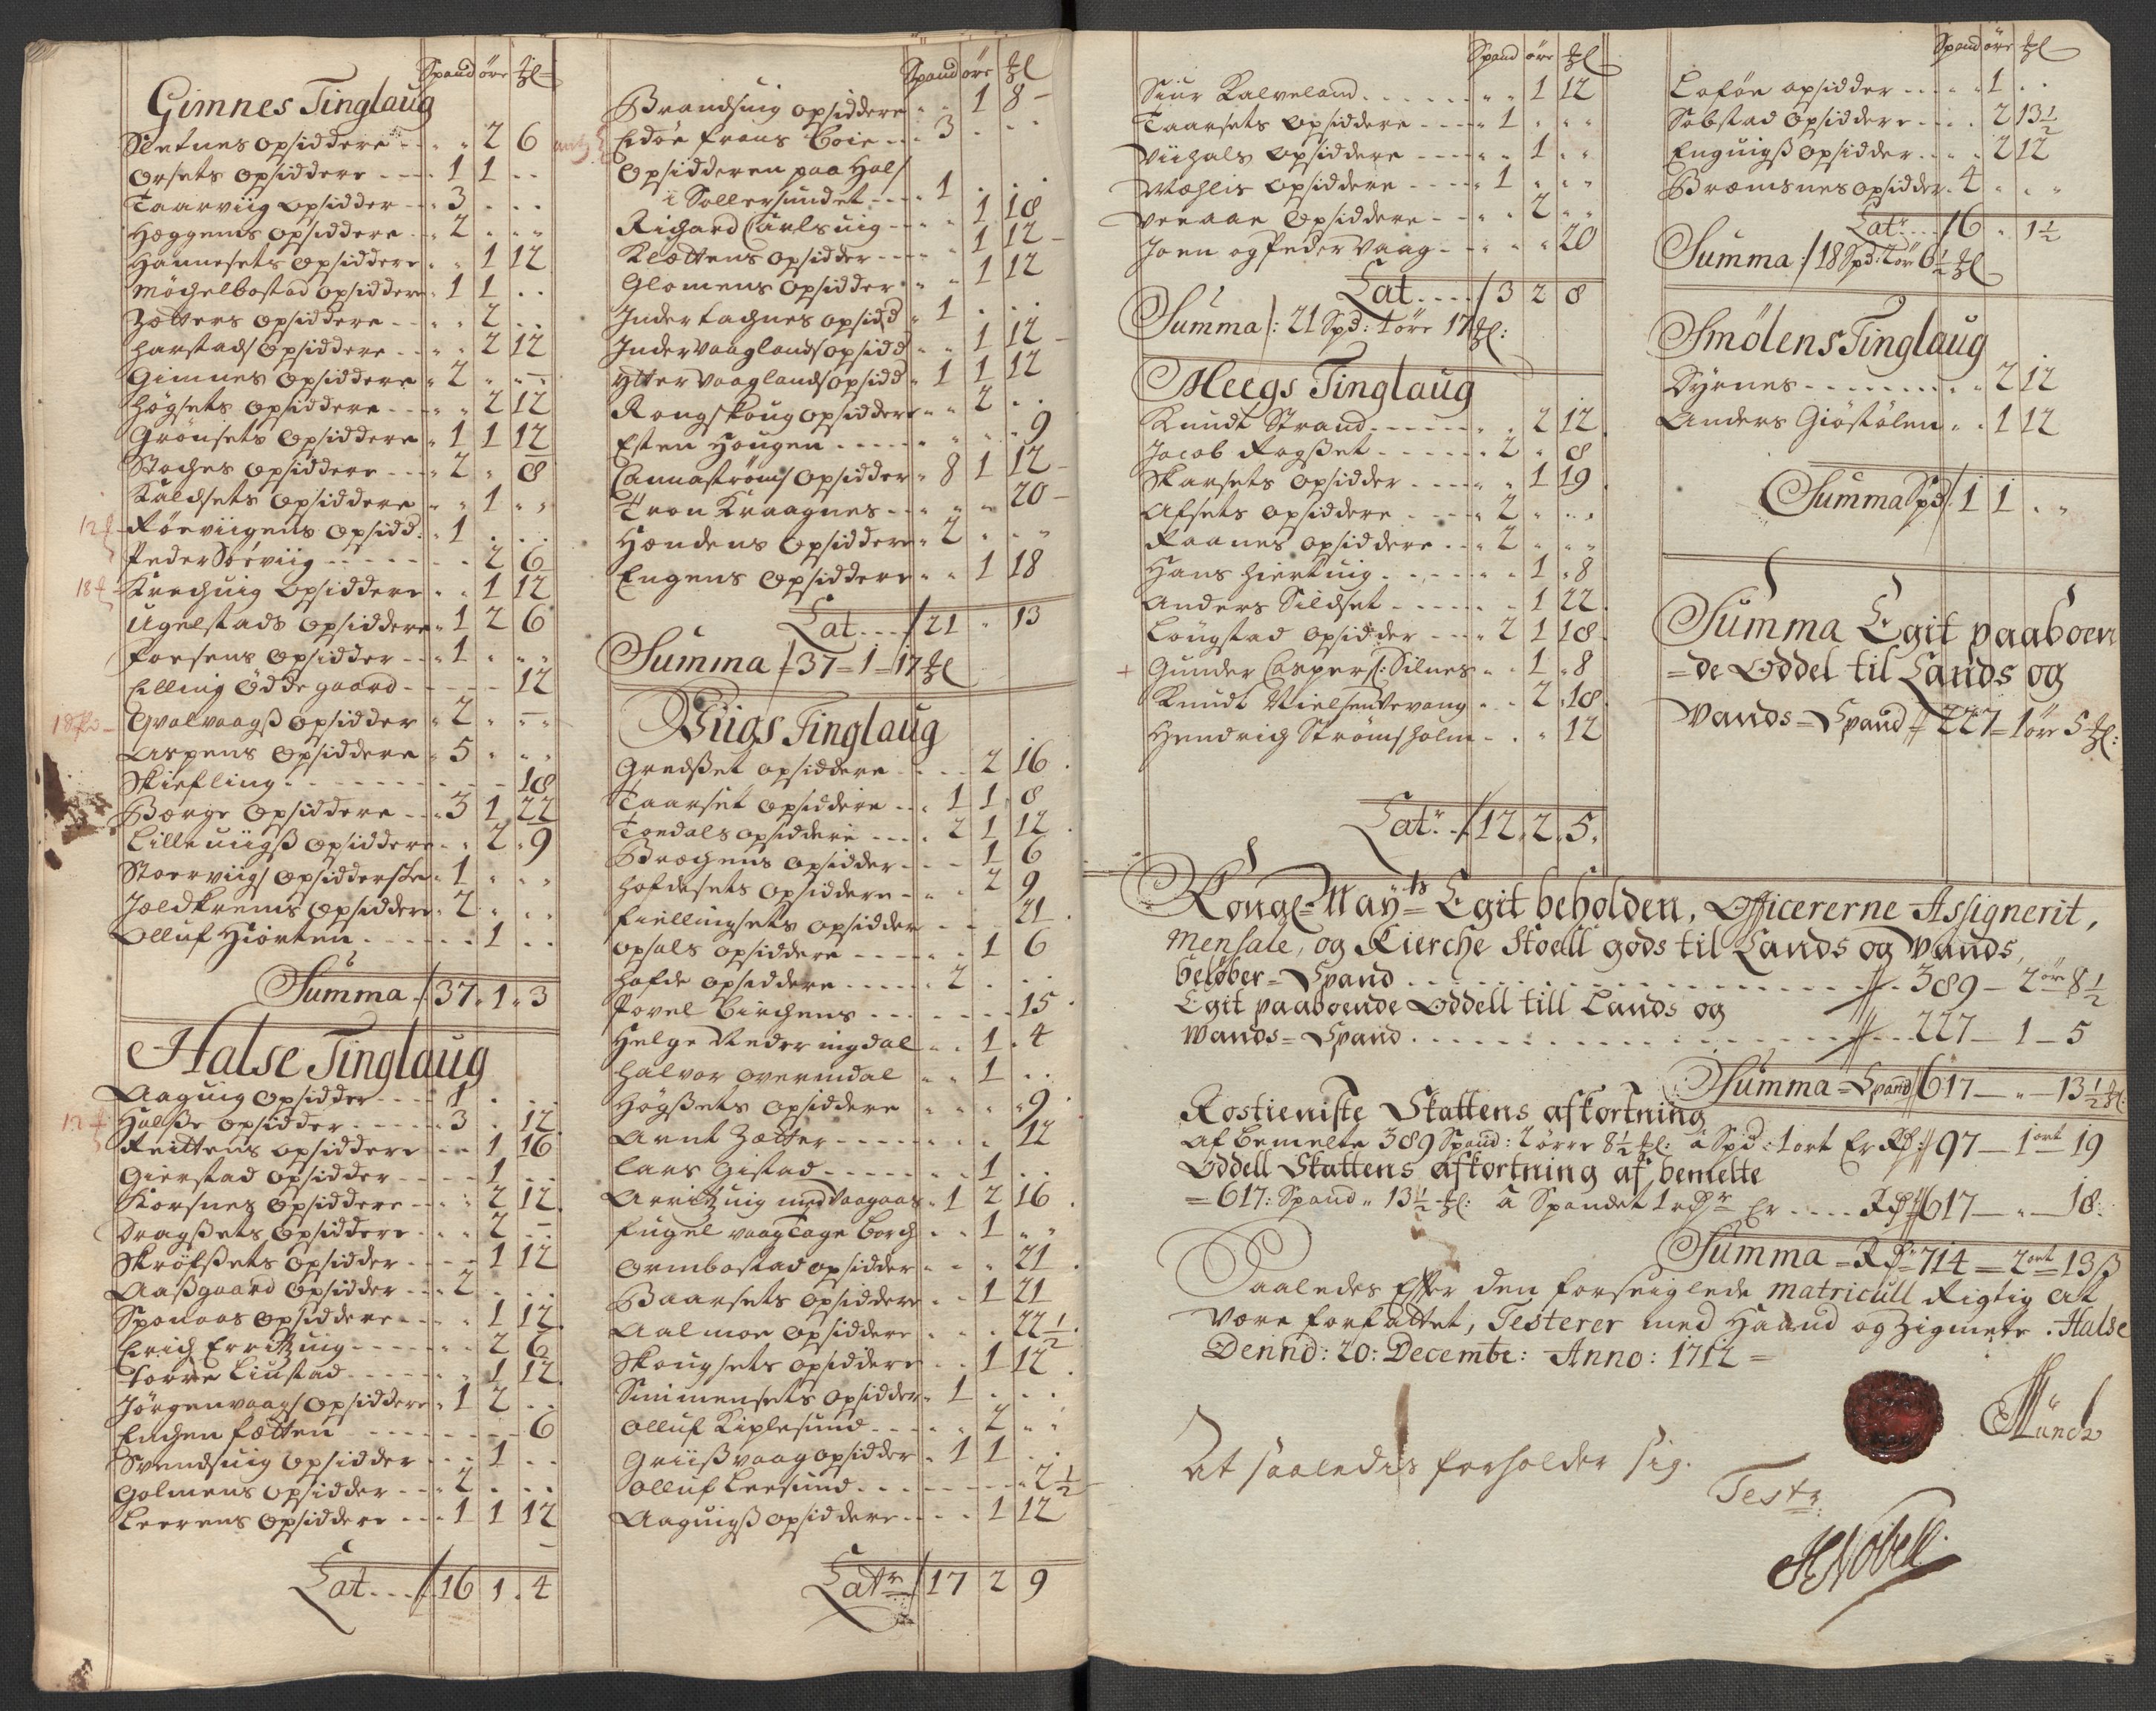 Spand öre
Gimnes Tinglaug
Sletnes opsiddere 2 6
Orsets opsiddere 1 1
Taarviig opsidder 3
Heggems opsiddere 2
Hannesets opsiddere 1 12
Möchelbostad opsiddere 1 1
Zætters opsiddere 2
Harstads opsiddere 2 12
Gimnes opsiddere 2
Högsets opsiddere 2 12
Grönsets opsiddere 1 1 12
Stoches opsiddere 2 8
Kaldsets opsiddere 1
Röeviigens opsidd. 1
Peder Söeviig 2 6
Krechuig opsiddere 1 12
Ugelstads opsiddere 1 2 6
Forsens opsidder 1
Elling Öddegaard 12
Qvalvaagß opsidder 2
Aspens opsiddere 5
Skiefling 18
Berge opsiddere 3 1 22
Lilleuiigß opsiddere 2 9
Stoerviigs opsidderste 1
Joeldkrems opsiddere 2
Olluf Hiorten 1
Summa 37 1 3
Halse Tinglaug
Aaguig opsidder 1
Halße opsidder 3 12
Reittens opsiddere 1 16
Gierstad opsidder 1
Korsnes opsiddere 2 12
Dragßets opsiddere 2
Skröfßets opsidder 1 12
Aaßgaard opsidder 2
Sponaas opsiddere 1 12
Erich Erritzuig 2 6
Torre Liustad 1 12
Jörgenvaags opsiddere 1 2
Enchen Fætten 6
Svendsuig opsidder 1
Golmens opsidder 2
Leerens opsiddere 1 1 12
Lat 16 1 4
Spand öre
Brandsuig opsiddere 1 8
Edöe Frans Boie 3
Opsidderen paa Hals
i Sollersundet 1
Richard Carlsuig 1 18
Klættens opsidder 1 12
Glomens opsidder 1 12
Indertachnes opsidd 1
Indervaaglands opsidd 1 12
Ytter vaaglands opsidd 1 1 12
Rongskoug opsiddere 2
Esten Hougen 9
Cannaströms opsidder 8 1 12
Tron Kraagnes 20
Hændens opsiddere 2
Engens opsiddere 1 18
Lat 21 13
Summa 37 1 17
Viigs Tinglaug
Gredßet opsiddere 2 16
Taarset opsiddere 1 1 8
Toedals opsiddere 2 1 12
Brechens opsidder 1 6
Hofdesets opsiddere 2 9
Fiellingsets opsidder 21
Opsals opsiddere 1 6
Hofde opsiddere 2
Povel Birchens 15
Helge Nederingdal 1 4
Halvor Overindal 1
Högßets opsiddere 9
Arnt Zætter 12
Lars Gistad 1
Arritzuig med Vaagaas 1 2 16
Fugelvaag Tage Borch 1
Ormbostad opsidder 21
Baarsets opsiddere 1 21
Aalmoe opsiddere 22½
Skougsets opsiddere 1 12
Simmensets opsidder 1
Olluf Kiplesund 2
Griißvaag opsidder 1 1
Olluf Leesund 2½
Aaguigß opsiddere 1 12
Latr 17 2 9
Spand öre
Siur Kalveland 1 12
Taarsets opsiddere 1
Viihals opsiddere 1
Mæhlis opsiddere 1
Veraae opsiddere 2
Joen og Peder Vaag 20
Lat 3 2 8
Summa 21 Spd: 1 öre 17
Meegs Tinglaug
Knudt Strand 2 12
Jacob Rogßet 2 8
Skarsets opsidder 1 19
Afsets opsiddere 2
Raanes opsiddere 2
Hans Hiertuig 1 8
Anders Sildset 1 22
Lougstad opsidder 2 1 18
+ Gunder Caspers: Silnes 1 8
Knudt Nielsen Vevang 2 18
Hendrich Strömsholm 12
Latr 12 2 5
Spand öre
Lofön opsidder 1
Sobstad opsiddere 2 13½
Enguigß opsidder 2 12
Bræmsnes opsidder 4
Latr 16 1½
Summa 18 Spd: 2 ör 6½
Smölens Tinglaug
Dyrnes 2 12
Anders Giöstölen 1 12
Summa Spd 1 1
Summa Egit paaboen
=de Oddel til Lands og
Vands = Spand 227 = 1 ör 5
Kongl= Mayts Egit beholden, Officererne Assignerit,
Mensale, og Kierche Stoell gods til Lands og Vands,
belöber = Spand 389 – 2 ör 8½
Egit paaboende Oddell till Lands og
Wands = Spand 227 – 1 – 5
Summa = Spand 617 – 13½
Rostieniste Skattens afkortning
Af bemelte 389 Spand: 2 örre 8½ à Spd: 1 ort Er Rd 97 – 1 ort 19
Oddell Skattens afkortning af bemelte
= 617: Spand 13½ à Spandet 1 rdr Er Rd 617 – 18
Summa = Rd 714 = 2 ort 13 ß
Saaledes Efter den forseiglede Matricull Rigtig at
Være forfattet, Testerer med Haand og Zignete. Halse
Dennd: 20: Decembr: Anno: 1712 =
Münch
At saaledis forholder sig.
Testr
HNobell